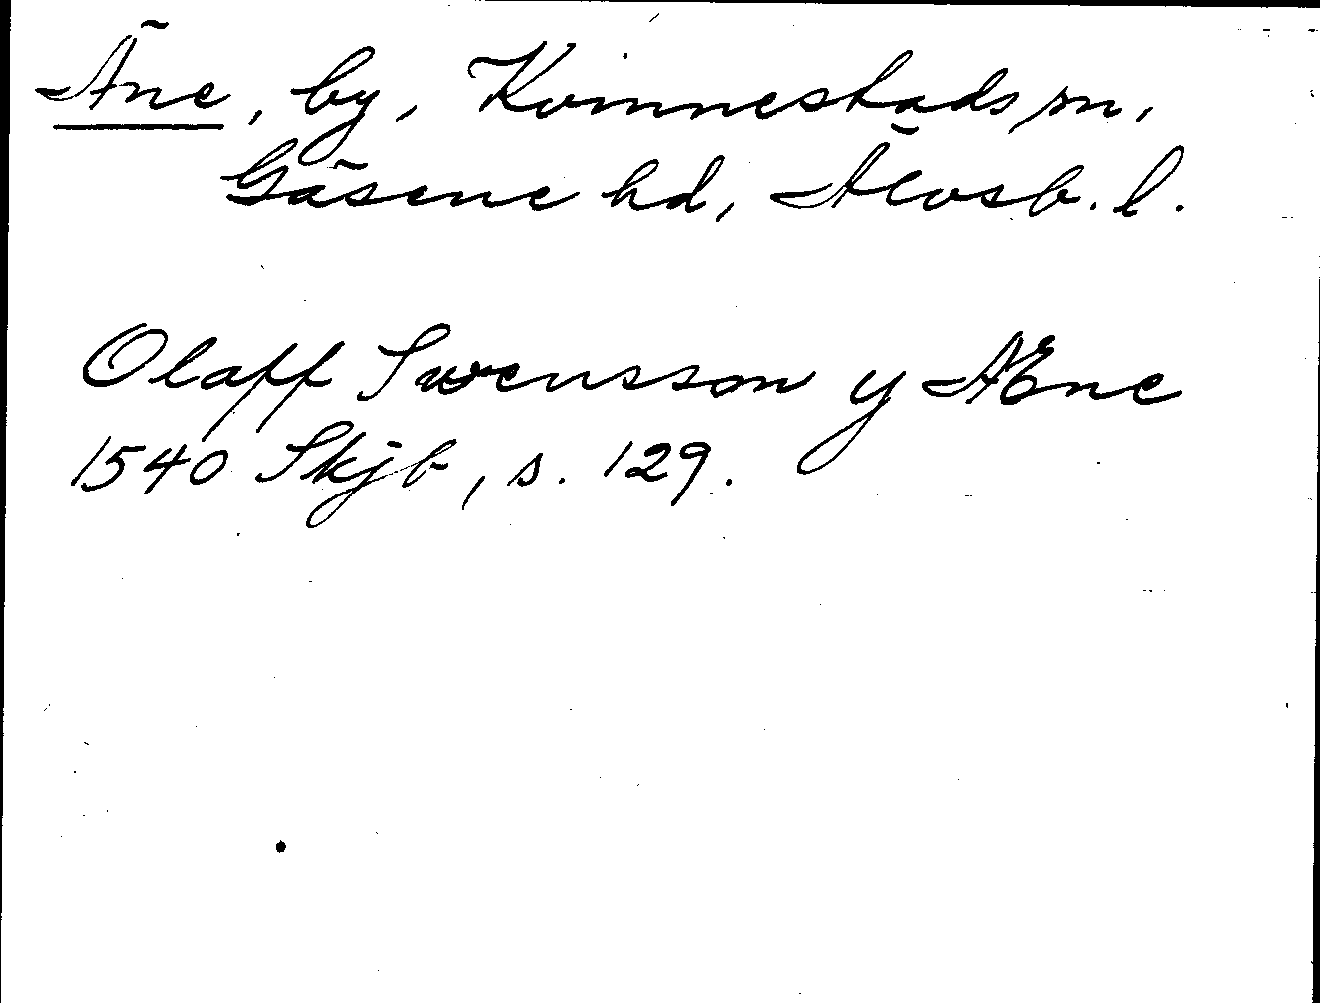 Äne, by, Kvinnestads sn,
Gäsene hd, Älvsb. l.
Olaff Swensson y AEne
1540 Skjb, s. 129.